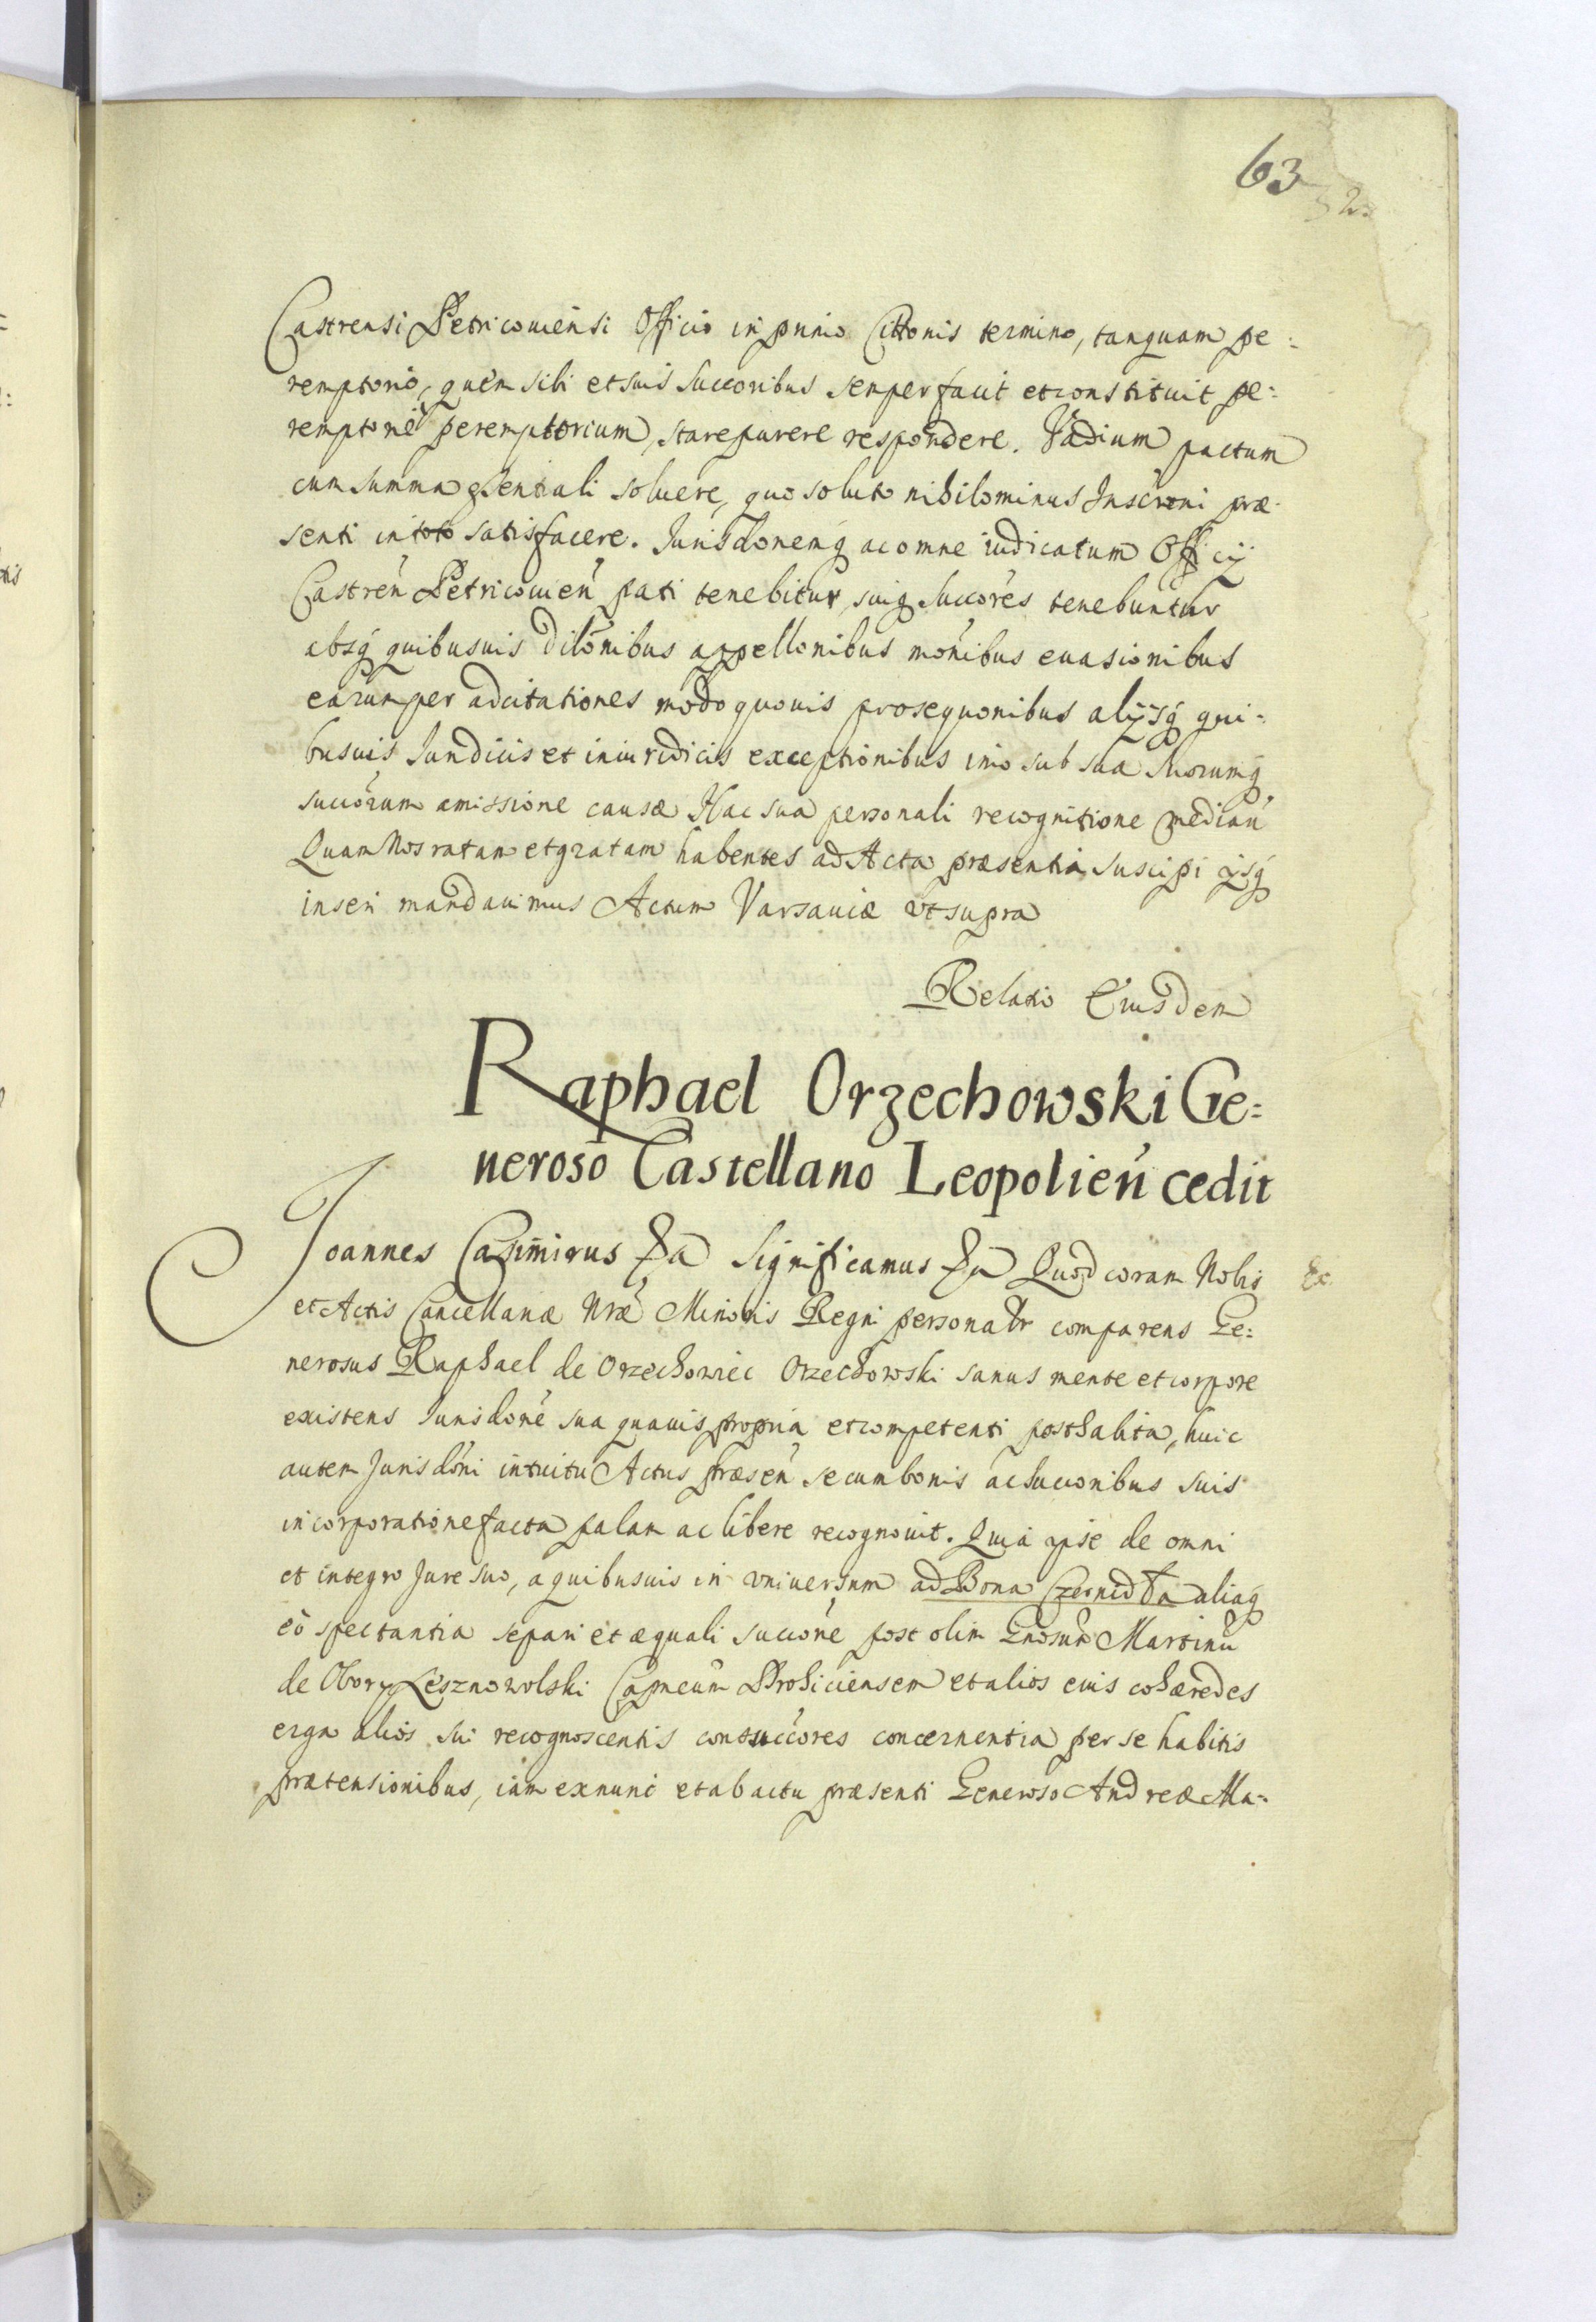 63
Castrensi Petricouiensi Officio in primo Cittonis termino, tanquam pe:
remptorio, quem sibi et suis Succoribus semper facit et constituit pe:
remptorie peremptorium, stare parere respondere. Vadium pactum
cum summa plentiali soluere, quo soluto nihilominus Inscroni præ-
senti in toto satisfacere. Jurisdonemq ac omne iudicatum Officij
Castren Petricouien pati tenebitur, suiq Succores tenebuntur
absq quibusuis Dilonibus appellonibus monibus euasionibus
earumper adcitationes modo quouis prosequonibus alijsq qui:
busuis Juridicis et iniuridicis exceptionibus imo sub sua suorumq
succorum amissione causæ Hac sua personali recognitione median
Quam Nos ratam et gratam habentes ad Acta præsentia suscipi ijsq
inseri mandauimus Actum Varsauiæ vt supra
Relatio Eiusdem
Raphael Orzechowski Ge:
neroso Castellano Leopolien cedit
Joannes Casimirus Significamus Quod coram Nobis
et Actis Cancellariæ Nræ Minoris Regni personalr comparens Ge:
nerosus Raphael de Orzechowiec Orzechowski sanus mente et corpore
existens Jurisdone sua quauis propria et competenti posthabita, huic
autem Jurisdoni intuitu Actus præsen se cum bonis ac succoribus suis
incorporatione facta palam ac libere recognouit. Quia ipse de omni
et integro Jure suo, a quibusuis in vniuersum ad Bona aliaq
eo spectantia se pari et æquali succone post olim Gnosum Martinu
de Obory Lesznowolski Capneum Drohiciensem et alios eius cohæredes
erga alios sui recognoscentis consuccores concernentia per se habitis
prætensionibus, iam ex nunc et ab actu præsenti Generoso Andreæ Ma-